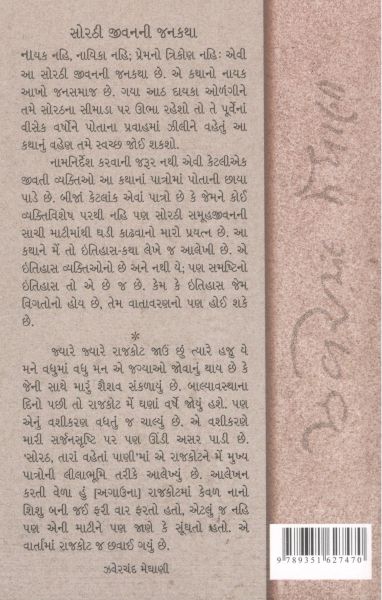 સોરઠી જીવનની જનકથા
નાયક નહિ, નાયિકા નહિ; પ્રેમનો ત્રિકોણ નહિઃ એવી
આ સોરઠી જીવનની જનકથા છે. એ કથાનો નાયક
આખો જનસમાજ છે. ગયા આઠ દાયકા ઓળંગીને
તમે સોરઠના સીમાડા પર ઊભા રહેશો તો તે પૂર્વેનાં
વીસેક વર્ષોને પોતાના પ્રવાહમાં ઝીલીને વહેતું આ
કથાનું વહેણ તમે સ્વચ્છ જોઈ શકશો.
નામનિર્દેશ કરવાની જરૂર નથી એવી કેટલીએક
જીવતી વ્યક્તિઓ આ કથાનાં પાત્રોમાં પોતાની છાયા
પાડે છે. બીજાં કેટલાંક એવાં પાત્રો છે કે જેમને કોઈ
વ્યક્તિવિશેષ પરથી નહિ પણ સોરઠી સમૂહજીવનની
સાચી માટીમાંથી ઘડી કાઢવાનો મારો પ્રયત્ન છે. આ
કથાને મેં તો ઇતિહાસ-કથા લેખે જ આલેખી છે. એ
ઇતિહાસ વ્યક્તિઓનો છે અને નથી યે; પણ સમષ્ટિનો
ઇતિહાસ તો એ છે જ છે. કેમ કે ઇતિહાસ જેમ
વિગતોનો હોય છે, તેમ વાતાવરણનો પણ હોઈ શકે
છે.
*
જ્યારે જ્યારે રાજકોટ જાઉં છું ત્યારે હજુ યે
મને વધુમાં વધુ મન એ જગ્યાઓ જોવાનું થાય છે કે
જેની સાથે મારું શૈશવ સંકળાયું છે. બાલ્યાવસ્થાના
દિનો પછી તો રાજકોટ મેં ઘણાં વર્ષે જોયું હશે. પણ
એનું વશીકરણ વધતું જ ચાલ્યું છે. એ વશીકરણે
મારી સર્જનસૃષ્ટિ પર પણ ઊંડી અસર પાડી છે.
'સોરઠ, તારાં વહેતાં પાણી'માં એ રાજકોટને મેં મુખ્ય
પાત્રોની લીલાભૂમિ તરીકે આલેખ્યું છે. આલેખન
કરતી વેળા હું [અગાઉના] રાજકોટમાં કેવળ નાનો
શિશુ બની જઈ ફરી વાર ફરતો હતો, એટલું જ નહિ
પણ એની માટીને પણ જાણે કે સૂંઘતો હતો. એ
વાર્તામાં રાજકોટ જ છવાઈ ગયું છે.
ઝવેરચંદ મેઘાણી
ઝવેરચંદ મેઘાણી
9 789351 627470